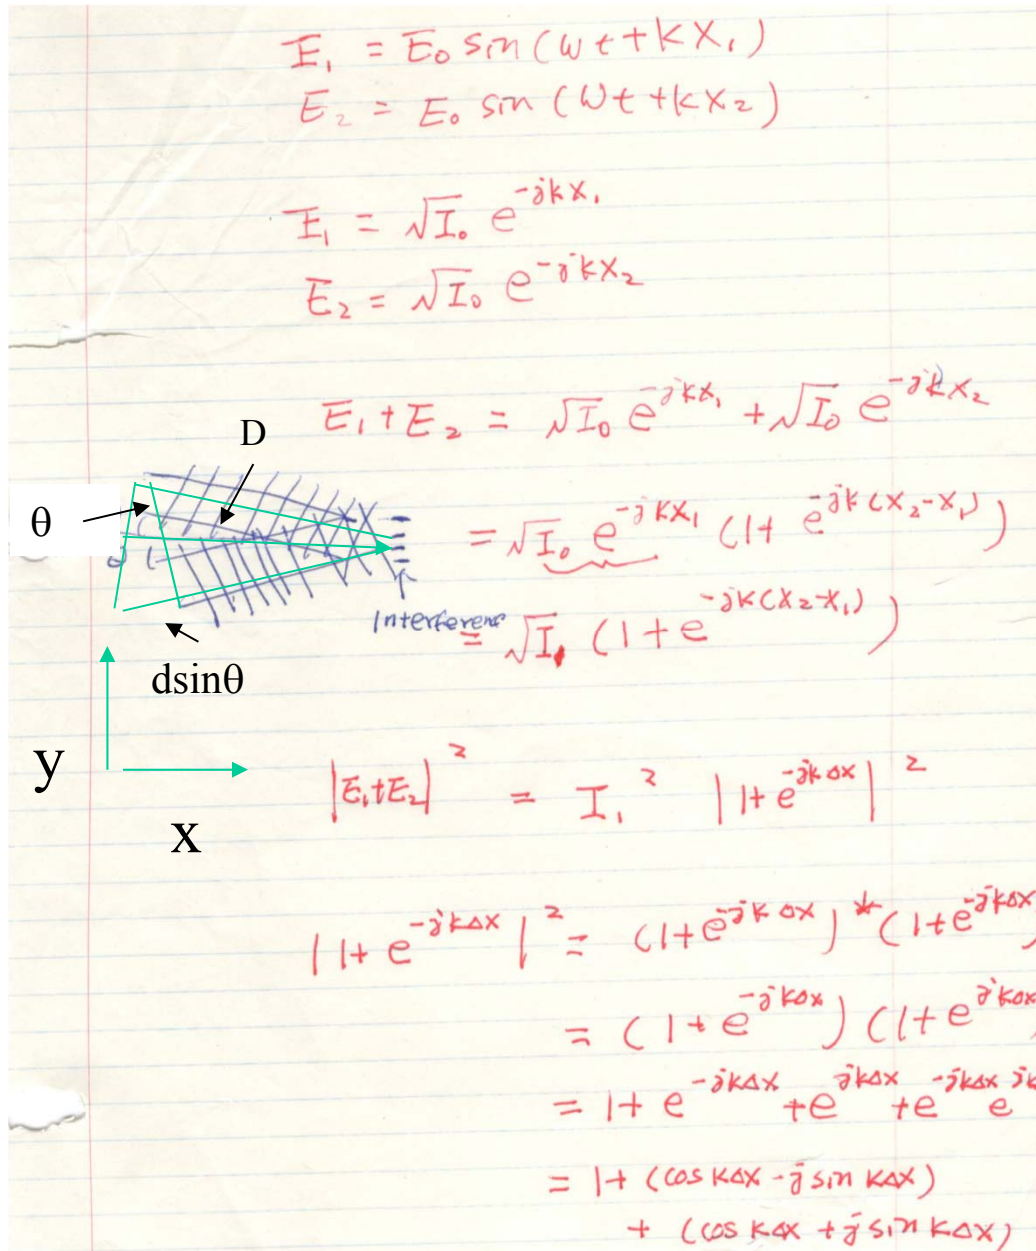 E₁ = E₀ sin(ωt + kx₁)
E₂ = E₀ sin(ωt + kx₂)
E₁ = √I₀ e^{-jkx₁}
E₂ = √I₀ e^{-jkx₂}
E₁ + E₂ = √I₀ e^{-jkx₁} + √I₀ e^{-jkx₂}
D
θ
= √I₀ e^{-jkx₁} (1 + e^{-jk(x₂-x₁)})
Interference
= √I₁ (1 + e^{-jk(x₂-x₁)})
dsinθ
y
x
|E₁+E₂|² = I₁² |1+e^{-jkΔx}|²
|1+e^{-jkΔx}|² = (1+e^{-jkΔx})*(1+e^{-jkΔx}
= (1+e^{-jkΔx})(1+e^{jkΔx}
= 1+e^{-jkΔx}+e^{jkΔx}+e^{-jkΔx}e^{jk
= 1+(cos kΔx - j sin kΔx)
+ (cos kΔx + j sin kΔx)